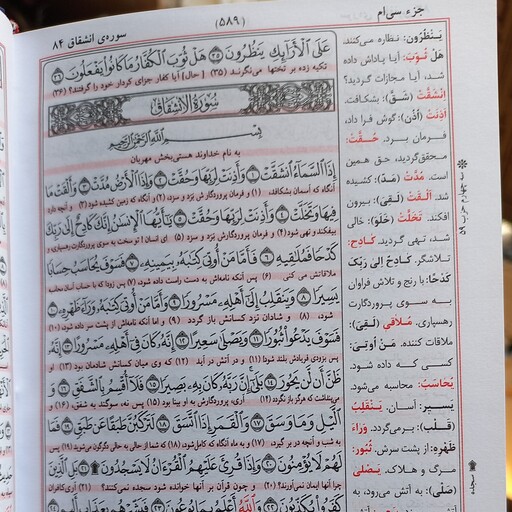 جزء سی‌ام
(۵۸۹)
سوره‌ی انشقاق ۸۴
عَلَى الْأَرَائِكِ يَنْظُرُونَ ﴿٣٥﴾ هَلْ ثُوِّبَ الْكُفَّارُ مَا كَانُوا يَفْعَلُونَ ﴿٣٦﴾
تکیه زده بر تختها می‌نگرند (۳۵) [حال] آیا کفار جزای کردار خود را گرفتند؟ (۳۶)
سُورَةُ الْإِنْشِقَاقِ
بِسْمِ اللَّهِ الرَّحْمٰنِ الرَّحِيمِ
به نام خداوند هستی‌بخش مهربان
إِذَا السَّمَاءُ انْشَقَّتْ ﴿١﴾ وَأَذِنَتْ لِرَبِّهَا وَحُقَّتْ ﴿٢﴾ وَإِذَا الْأَرْضُ مُدَّتْ ﴿٣﴾ وَأَلْقَتْ مَا
آنگاه که آسمان بشکافد، (۱) و فرمان پروردگارش بَرَد و سزد (۲) و آنگاه که زمین کشیده شود (۳) و آنچه دارد
فِيهَا وَتَخَلَّتْ ﴿٤﴾ وَأَذِنَتْ لِرَبِّهَا وَحُقَّتْ ﴿٥﴾ يَا أَيُّهَا الْإِنْسَانُ إِنَّكَ كَادِحٌ إِلَى رَبِّكَ
بیفکند و تهی شود (۴) و فرمان پروردگارش بَرَد و سزد (۵) ای انسان! تو سخت به سوی پروردگارت رهسپاری و
كَدْحًا فَمُلَاقِيهِ ﴿٦﴾ فَأَمَّا مَنْ أُوتِيَ كِتَابَهُ بِيَمِينِهِ ﴿٧﴾ فَسَوْفَ يُحَاسَبُ حِسَابًا
ملاقاتش می کنی (۶) پس آنکه نامه‌اش به دست راست داده شود، (۷) پس زودا که با حساب آسان محاسبه
يَسِيرًا ﴿٨﴾ وَيَنْقَلِبُ إِلَى أَهْلِهِ مَسْرُورًا ﴿٩﴾ وَأَمَّا مَنْ أُوتِيَ كِتَابَهُ وَرَاءَ ظَهْرِهِ ﴿١٠﴾
شود، (۸) و شادان نزد کسانش باز گردد (۹) و اما آنکه نامه‌اش از پشت سر داده شود، (۱۰)
فَسَوْفَ يَدْعُو ثُبُورًا ﴿١١﴾ وَيَصْلَى سَعِيرًا ﴿١٢﴾ إِنَّهُ كَانَ فِي أَهْلِهِ مَسْرُورًا ﴿١٣﴾ إِنَّهُ
پس بزودی فریادش بلند شود! (۱۱) و در آتش در آید (۱۲) که وی میان کسانش شادمان بود (۱۳) او
ظَنَّ أَنْ لَنْ يَحُورَ ﴿١٤﴾ بَلَى إِنَّ رَبَّهُ كَانَ بِهِ بَصِيرًا ﴿١٥﴾ فَلَا أُقْسِمُ بِالشَّفَقِ ﴿١٦﴾ وَ
می‌پنداشت که هرگز باز نگردد (۱۴) آری، پروردگارش به او بینا بود (۱۵) پس نه، سوگند به شفق، (۱۶) و
اللَّيْلِ وَمَا وَسَقَ ﴿١٧﴾ وَالْقَمَرِ إِذَا اتَّسَقَ ﴿١٨﴾ لَتَرْكَبُنَّ طَبَقًا عَنْ طَبَقٍ ﴿١٩﴾ فَمَا
به شب و آنچه در بر گیرد، (۱۷) و به ماه آنگاه که کامل‌شود، (۱۸) که شما از حالی به حالی دگرگون می‌شوید (۱۹) پس
لَهُمْ لَا يُؤْمِنُونَ ﴿٢٠﴾ وَإِذَا قُرِئَ عَلَيْهِمُ الْقُرْءَانُ لَا يَسْجُدُونَ ﴿٢١﴾ بَلِ الَّذِينَ
چرا آنها ایمان نمی‌آورند؟ (۲۰) و چون قرآن بر آنها خوانده شود سجده نمی‌کنند؟ (۲۱) آری کافران
كَفَرُوا يُكَذِّبُونَ ﴿٢٢﴾ وَاللَّهُ أَعْلَمُ بِمَا يُوعُونَ ﴿٢٣﴾ فَبَشِّرْهُمْ بِعَذَابٍ أَلِيمٍ
يَنْظُرُونَ: نظاره می‌کنند.
هَلْ ثُوِّبَ: آیا پاداش داده
شد، آیا مجازات گردید؟
اِنْشَقَّتْ (شَقَّ): بشکافت.
أَذِنَتْ (أذن): گوش فرا داد،
فرمان برد. حُقَّتْ:
محقق‌گردید، حق همین
است. مُدَّتْ (مَدَّ): کشیده
شد. أَلْقَتْ (لَقِيَ): بیرون
افکند. تَخَلَّتْ (خَلَوَ): خالی
شد، تهی گردید. كَادِحٌ:
تلاشگر. كَادِحٌ إِلَى رَبِّكَ
كَدْحًا: با رنج و تلاش فراوان
به سوی پروردگارت
رهسپاری. مُلَاقِي (لَقِيَ):
ملاقات کننده. مَنْ أُوتِيَ:
کسی که داده شود.
يُحَاسَبُ: محاسبه می‌شود.
يَسِير: آسان. يَنْقَلِبُ
(قَلَبَ): برمی‌گردد. وَرَاءَ
ظَهْرِهِ: از پشت سرش. ثُبُور:
مرگ و هلاک. يَصْلَى
(صَلَى): به آتش می‌رود، به
سجده